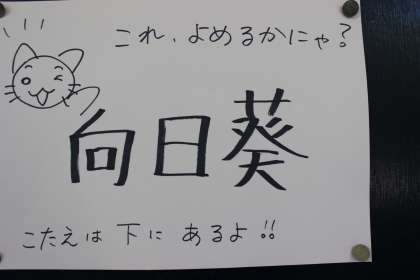 これ、よめるかにゃ?
向日葵
こたえは 下に あるよ!!